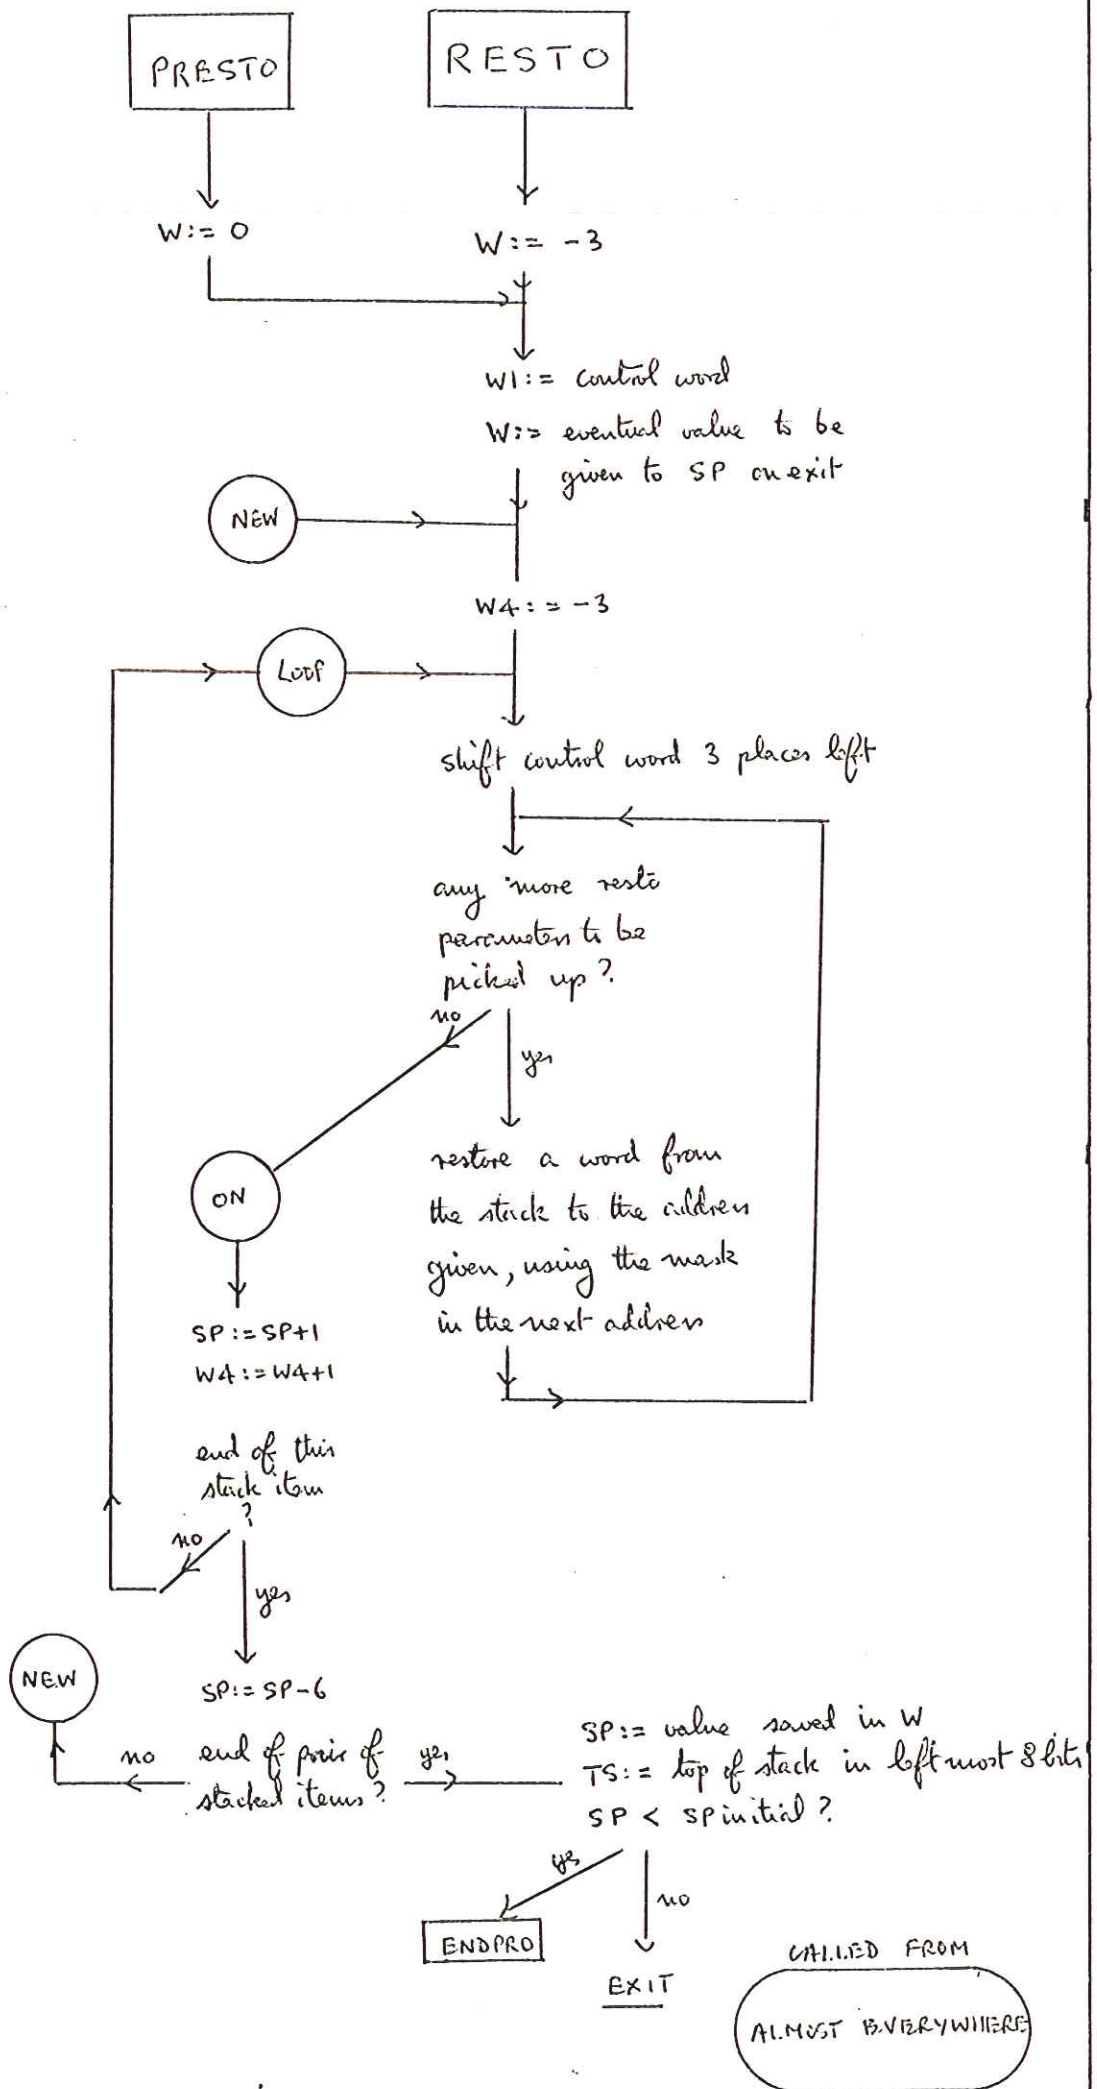 PRESTO
RESTO
W:= 0
W:= -3
W1:= control word
W:= eventual value to be
given to SP on exit
NEW
W4:= -3
LOOP
shift control word 3 places left
any more resto
parameters to be
picked up?
no
yes
ON
restore a word from
the stack to the address
given, using the mask
in the next address
SP:=SP+1
W4:=W4+1
end of this
stack item
?
no
yes
NEW
SP:=SP-6
no
end of pair of
stacked items?
yes
SP:= value saved in W
TS:= top of stack in leftmost 8 bits
SP < SP initial?
yes
no
ENDPRO
EXIT
CALLED FROM
ALMOST EVERYWHERE